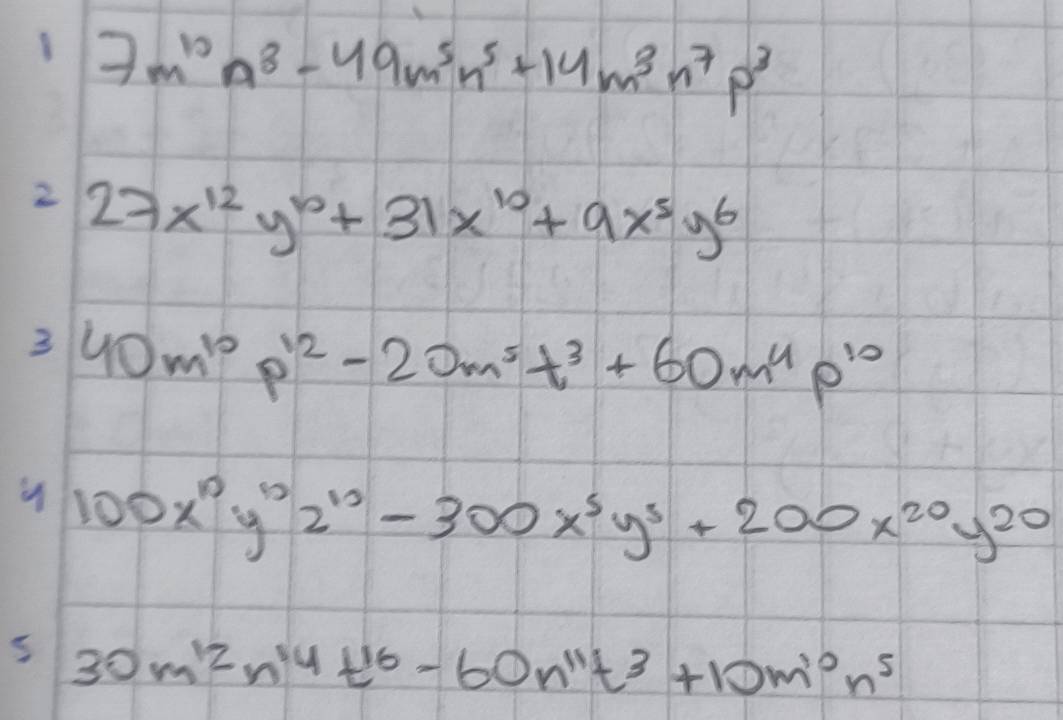 1 7m¹⁰n⁸ - 49m⁵n⁵ + 14m³n⁷p³
2 27x¹²y¹⁰ + 31x¹⁰ + 9x⁵y⁶
3 40m¹⁰p¹² - 20m⁵t³ + 60m⁴p¹⁰
4 100x¹⁰y¹⁰z¹⁰ - 300x⁵y⁵ + 200x²⁰y²⁰
5 30m¹²n¹⁴t¹⁶ - 60n¹¹t³ + 10m¹⁰n⁵